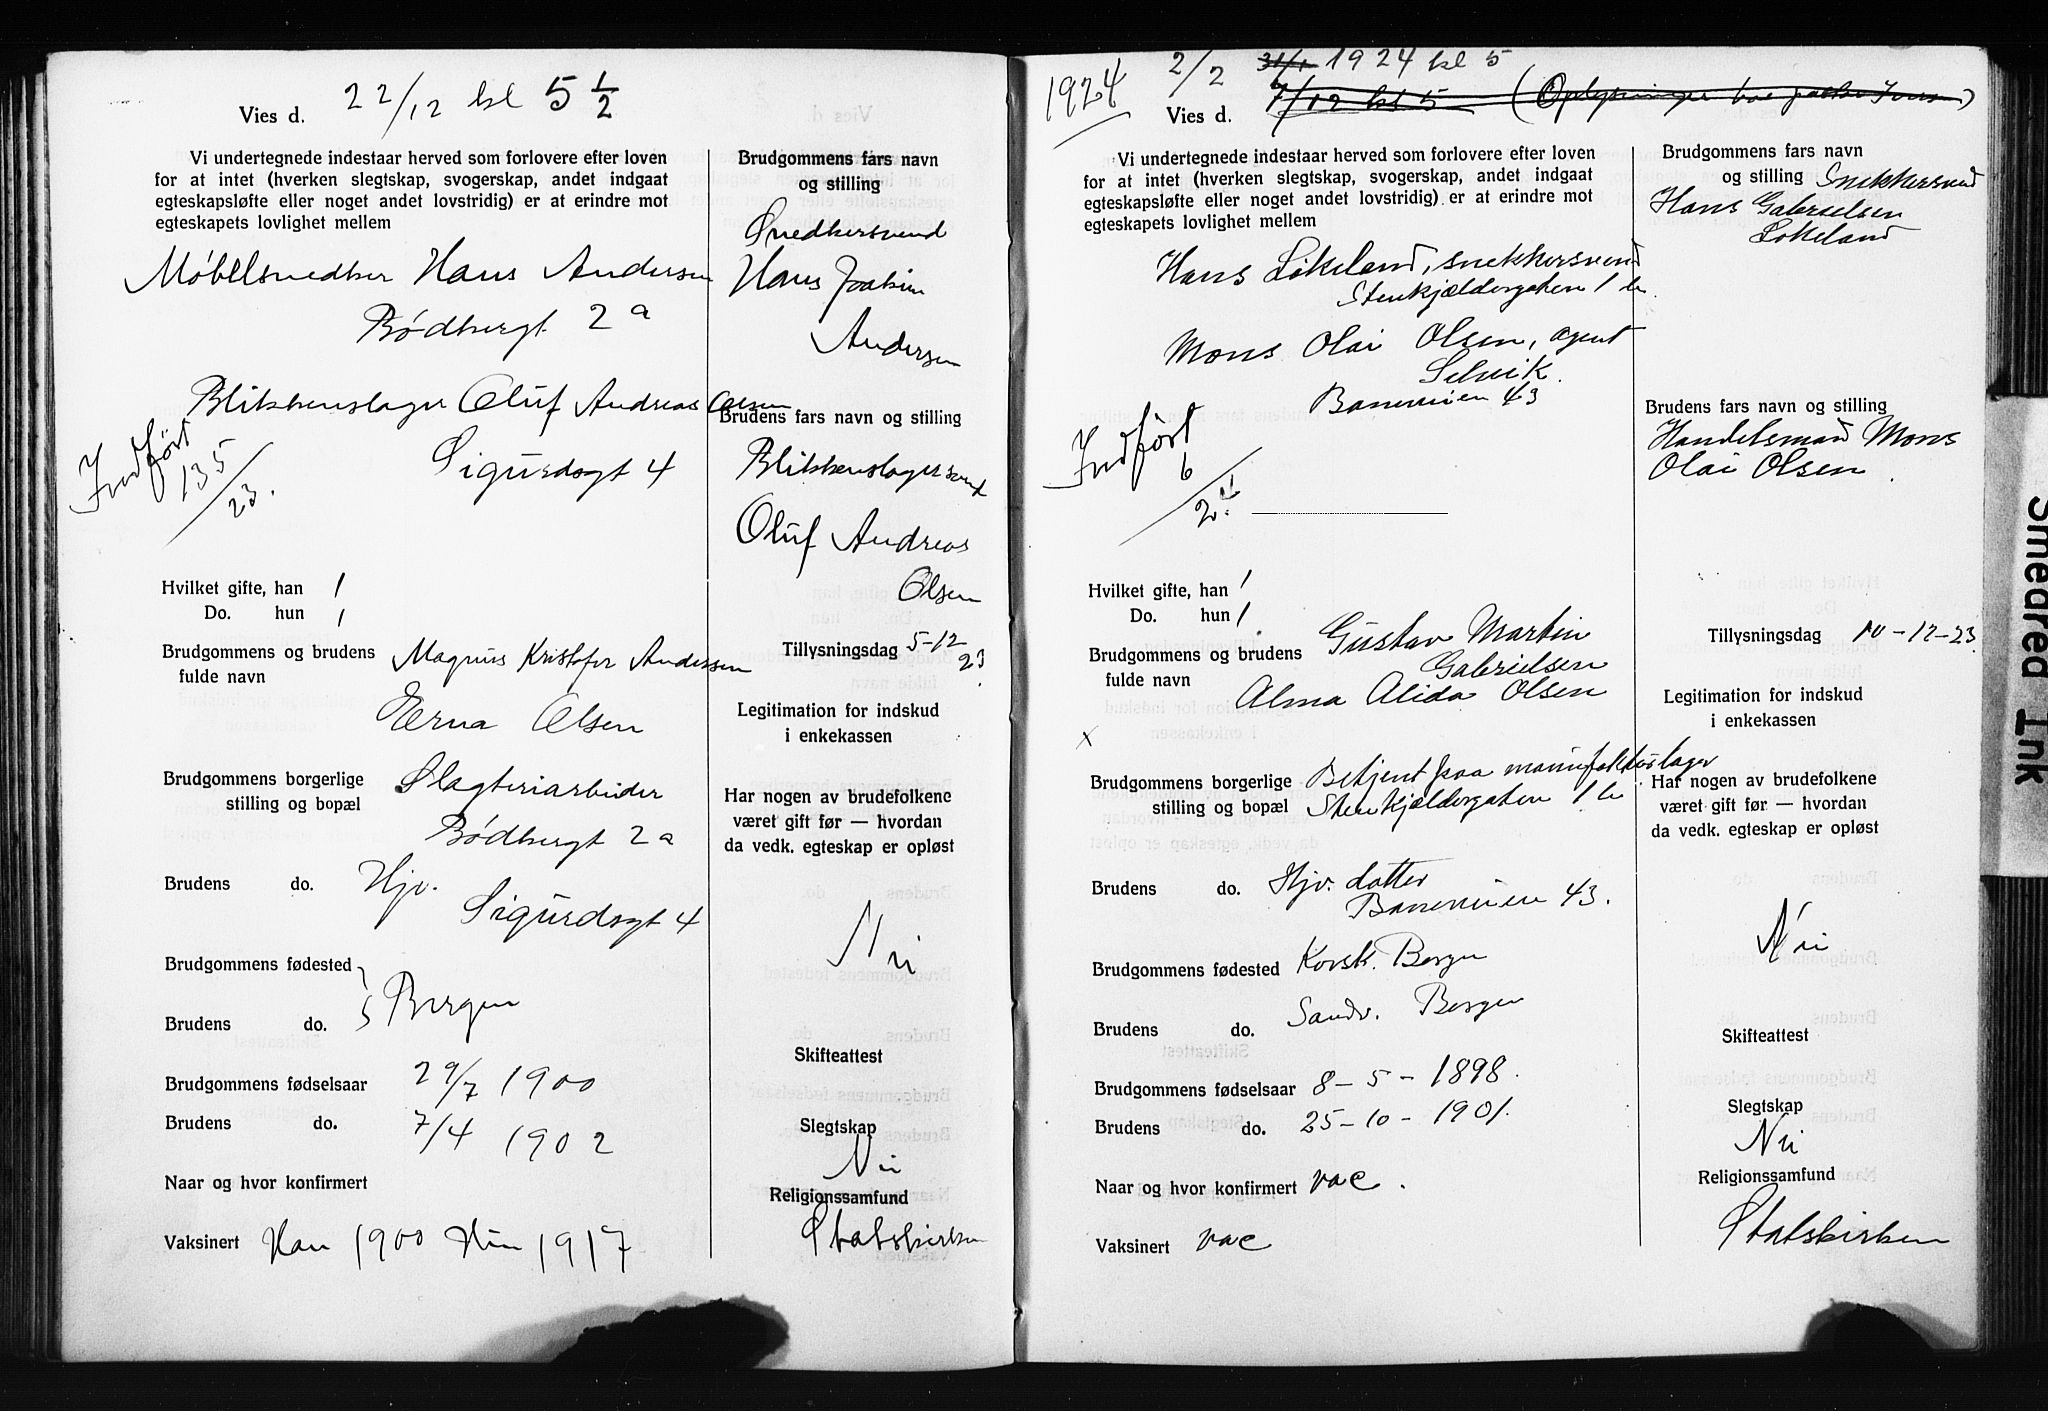 Vies d. 22/12 kl 5 1/2
Vi undertegnede indestaar herved som forlovere efter loven
for at intet (hverken slegtskap, svogerskap, andet indgaat
egteskapsløfte eller noget andet lovstridig) er at erindre mot
egteskapets lovlighet mellem
Møbelsnedker Hans Andersen
Bødkergt 2a
Blikkenslager Oluf Andreas Olsen
Sigurdsgt 4
Indført
135/23.
Hvilket gifte, han 1
Do. hun 1
Brudgommens og brudens Magnus Kristofer Andersen
fulde navn
Erna Olsen
Brudgommens borgerlige Slagteriarbeider
stilling og bopæl
Bødkergt 2a
Brudens do. Hjv.
Sigurdsgt 4
Brudgommens fødested
Bergen
Brudens do.
Brudgommens fødselsaar 29/7 1900
Brudens do. 7/4 1902
Naar og hvor konfirmert
Vaksinert Han 1900 Hun 1917
Brudgommens fars navn
og stilling
Snedkersvend
Hans Joakim
Andersen
Brudens fars navn og stilling
Blikkenslagersvend
Oluf Andreas
Olsen
Tillysningsdag 5-12
23.
Legitimation for indskud
i enkekassen
Har nogen av brudefolkene
været gift før — hvordan
da vedk. egteskap er opløst
Nei
Skifteattest
Slegtskap
Nei
Religionssamfund
Statskirken
1924
2/2 31/1 1924 kl 5
Vies d. 7/12 kl 5 (Oplysninger hos
Vi undertegnede indestaar herved som forlovere efter loven
for at intet (hverken slegtskap, svogerskap, andet indgaat
egteskapsløfte eller noget andet lovstridig) er at erindre mot
egteskapets lovlighet mellem
Hans Løkeland, snekkersvend
Stenkjældergaten 1 b.
Mons Olai Olsen, agent
Selvik.
Baneveien 43
Indført
6/24.
Hvilket gifte, han 1
Do. hun 1
Gustav Martin
Brudgommens og brudens
Gabrielsen
fulde navn
Alma Alida Olsen
x
Brudgommens borgerlige Betjent paa manufakturlager
stilling og bopæl Stenkjældergaten 1 b
Brudens do. Hjv. datter
Baneveien 43.
Brudgommens fødested Korsk. Bergen
Brudens do. Sandv. Bergen
Brudgommens fødselsaar 8-5-1898.
Brudens do. 25-10-1901.
Naar og hvor konfirmert vac.
Vaksinert vac
Brudgommens fars navn
og stilling Snekkersvend
Hans Gabrielsen
Løkeland
Brudens fars navn og stilling
Handelsmand Mons
Olai Olsen.
Tillysningsdag 10-12-23.
Legitimation for indskud
i enkekassen
Har nogen av brudefolkene
været gift før — hvordan
da vedk. egteskap er opløst
Nei
Skifteattest
Slegtskap
Nei
Religionssamfund
Statskirken
Smedred Ink